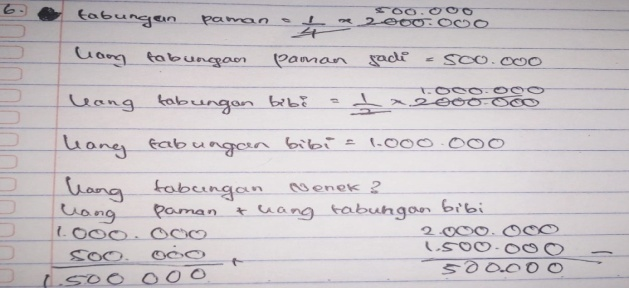 6. tabungan paman = 1/4 × 2000.000 500.000
Uang tabungan paman jadi = 500.000
Uang tabungan bibi = 1/2 × 2000.000 1.000.000
Uang tabungan bibi = 1.000.000
Uang tabungan Nenek?
Uang paman + uang tabungan bibi
1.000.000 2.000.000
500.000 + 1.500.000 -
1.500 000 500.000